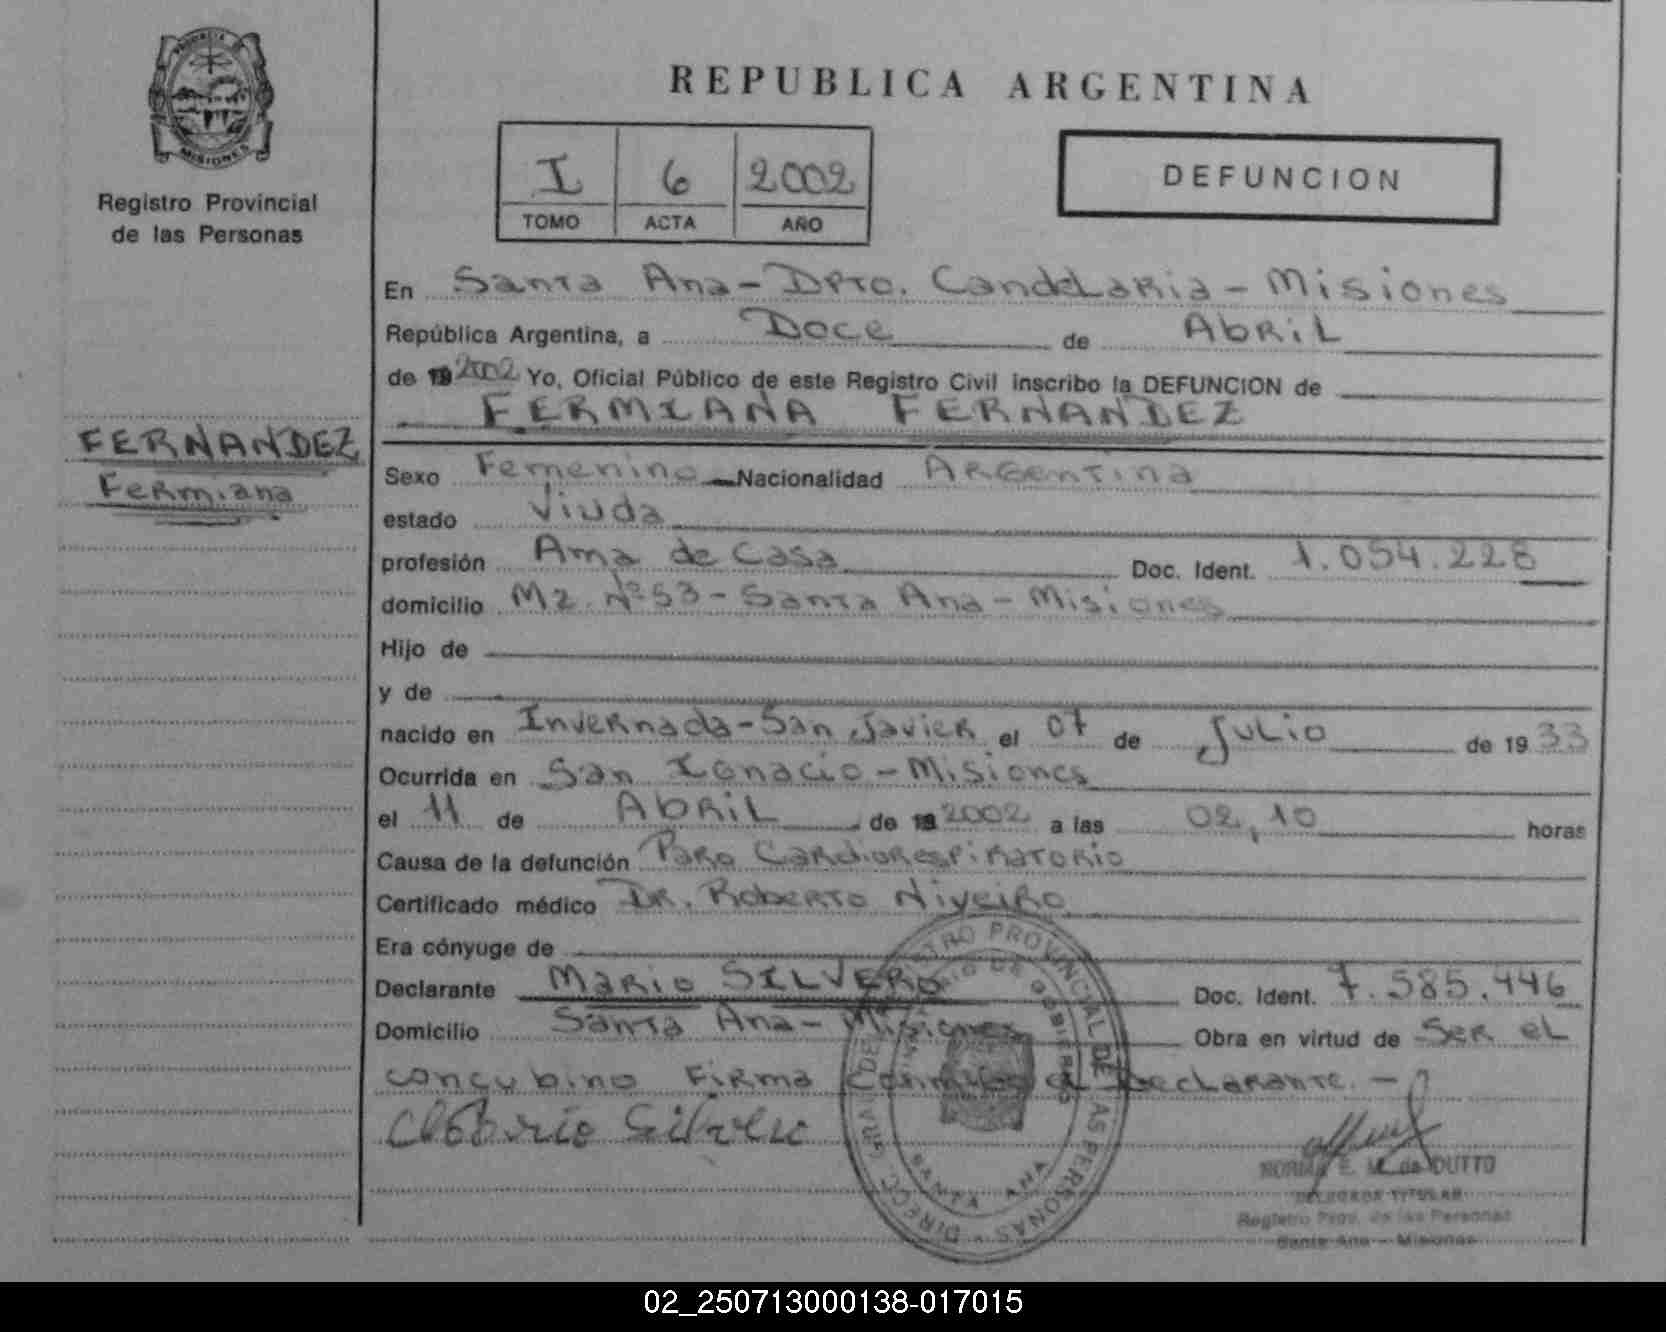 PROVINCIA DE
MISIONES
Registro Provincial
de las Personas
FERNANDEZ
Fermiana
REPUBLICA ARGENTINA
I 6 2002
TOMO ACTA AÑO
DEFUNCION
En Santa Ana-Dpto. Candelaria-Misiones
República Argentina, a Doce de Abril
de 19 2002 Yo, Oficial Público de este Registro Civil inscribo la DEFUNCION de
FERMIANA FERNANDEZ
Sexo Femenino Nacionalidad Argentina
estado Viuda
profesión Ama de Casa Doc. Ident. 1.054.228
domicilio Mz. Nº 53-Santa Ana-Misiones
Hijo de
y de
nacido en Invernada-San Javier el 07 de Julio de 1933
Ocurrida en San Ignacio-Misiones
el 11 de Abril de 19 2002 a las 02,10 horas
Causa de la defunción Paro Cardiorespiratorio
Certificado médico Dr. Roberto Niveiro
Era cónyuge de
Declarante Mario SILVERO Doc. Ident. 7.585.446
Domicilio Santa Ana-Misiones Obra en virtud de Ser el
concubino Firma Conmigo el Declarante.-
Silvero
DIRECC. GRAL. DEL REGISTRO PROVINCIAL DE LAS PERSONAS
MINISTERIO DE GOBIERNO
SANTA ANA
NORMA E. M. de DUTTO
DELEGADA TITULAR
Registro Prov. de las Personas
Santa Ana - Misiones
02_250713000138-017015